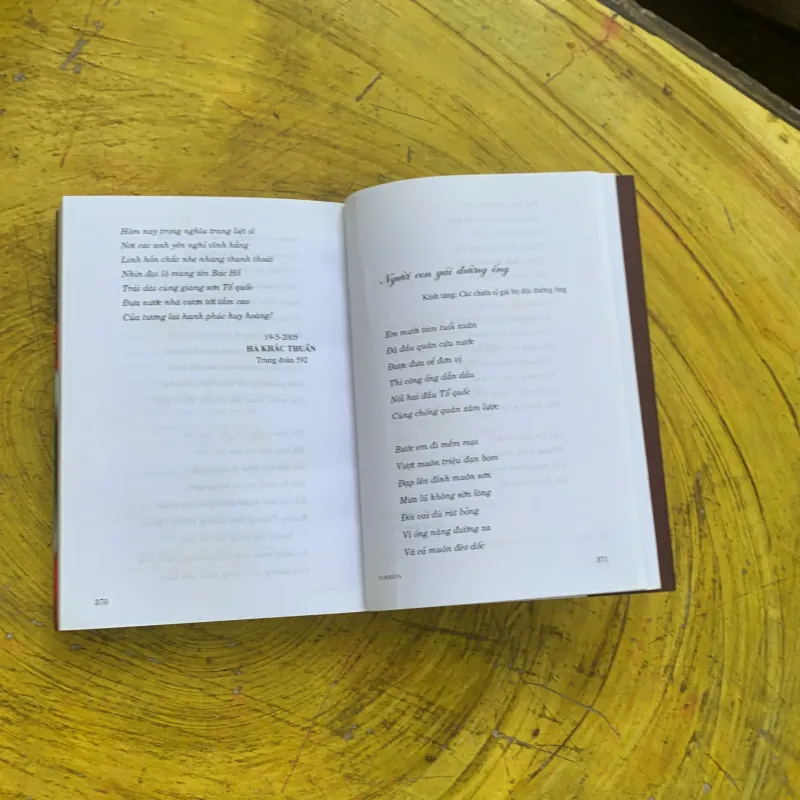 Hôm nay trong nghĩa trang liệt sĩ
Nơi các anh yên nghỉ vĩnh hằng
Linh hồn chắc nhẹ nhàng thanh thoát
Nhìn đại lộ mang tên Bác Hồ
Trải dài cùng giang sơn Tổ quốc
Đưa nước nhà vươn tới tầm cao
Của tương lai hạnh phúc huy hoàng!
19-5-2005
HÀ KHẮC THUẤN
Trung đoàn 592
370
Người con gái đường ống
Kính tặng: Các chiến sĩ gái bộ đội đường ống
Em mười tám tuổi xuân
Đã đầu quân cứu nước
Được đưa về đơn vị
Thi công ống dẫn dầu
Nối hai đầu Tổ quốc
Cùng chống quân xâm lược
Bước em đi mềm mại
Vượt muôn triệu đạn bom
Đạp lên đỉnh muôn sơn
Mưa lũ không sờn lòng
Đôi vai dù rát bỏng
Vì ống nặng đường xa
Và cả muôn đèo dốc
371